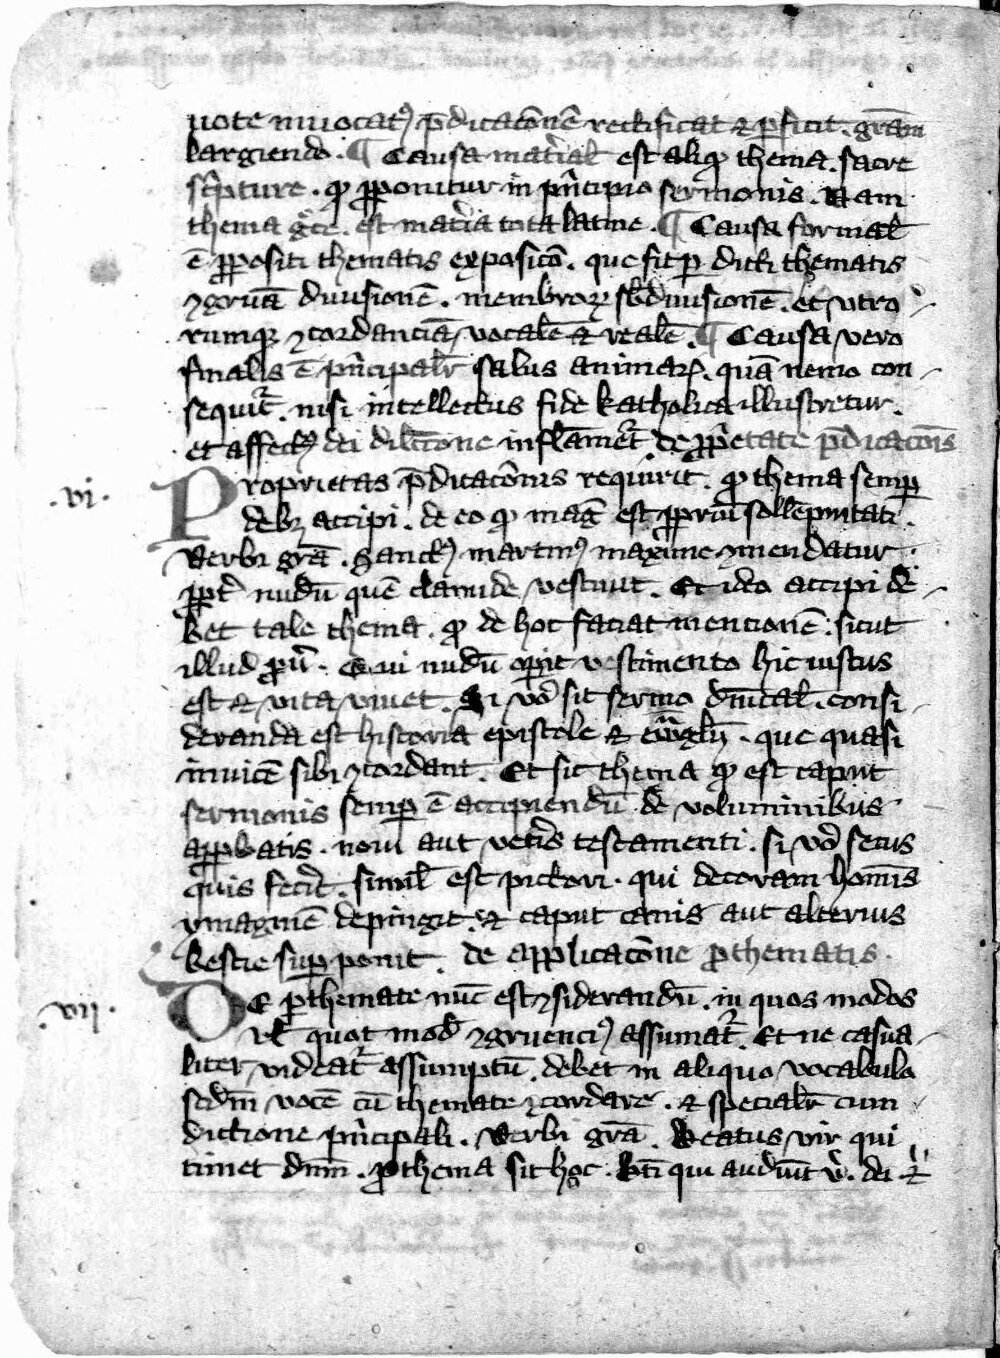 uote inuocatꝰ p̄dicac̄onē rectificat ⁊ ꝑficit . grām
largiendo . ¶ Causa mat̓ial̓ est aliqḋ thema . sacre
sc̓pture . qḋ ꝓponitur in pn̓cipio sermonis . Nam
thema gͬce . est mat̓ia tota latine . ¶ Causa formal̓
ē ꝓpositi thematis exposic̄o . que fit ꝑ dicti thematis
ꝯgruā diuisionē . membroꝝ sb̓diuisionē . et vtro
rumqꝫ ꝯcordanciā vocalē ⁊ realē . ¶ Causa vero
finalis ē pn̓cipalr̓ salus animaꝝ . quā nemo con
sequit̓ . nisi intellectus fide katholica illustretur .
et affectꝰ dei dilc̄tione inflāmet̓ . de ꝓp̓etate p̄dicac̄onis
.vi. Proprietas p̄dicac̄onis requirit . qḋ thema semꝑ
debꝫ accipi . de eo qḋ magͥ est ꝓpriū sollēpnitati .
Verbi grā . Sanctꝰ martinꝰ maxime ꝯmendatur .
ꝓpt̓ nudū quē clamide vestiuit . Et ideo accipi de
bet tale thema . qḋ de hoc faciat mentionē . sicut
illud ꝓu̓ . Qui nudū oꝑit vestimento hic iustus
est ⁊ vita viuet . Si vo̓ sit sermo dn̄ical̓ . consi
deranda est historia epistole ⁊ eūͣgl̓ij . que quasi
inuicē sibi ꝯcordant . Et sic thema qḋ est caput
sermonis semꝑ ē accipiendū de voluminibus
aꝓbatis . noui aut vet̓is testamenti . si vo̓ secus
quis fec̓it . simil̓ est pictori . qui decoram hoīnis
ymaginē depingit . ⁊ caput canis aut alterius
bestie suꝑponit . de applicac̄one ꝓthematis .
.vii. De ꝓthemate nūc est ꝯsiderandū . in quos modos
vl̓ quot mod̓ ꝯgruenciꝰ assumat̓ . Et ne casua
liter videat̓ assumptū . debet in aliquo vocabulo
scd̄m vocē cū themate ꝯcordare . ⁊ specialr̓ cum
dictione pn̓cipali . Verbi grā . Beatus vir qui
timet dn̄m . ꝓthema sit hoc . bt̄i qui audiūt v̓ . dei ⁊